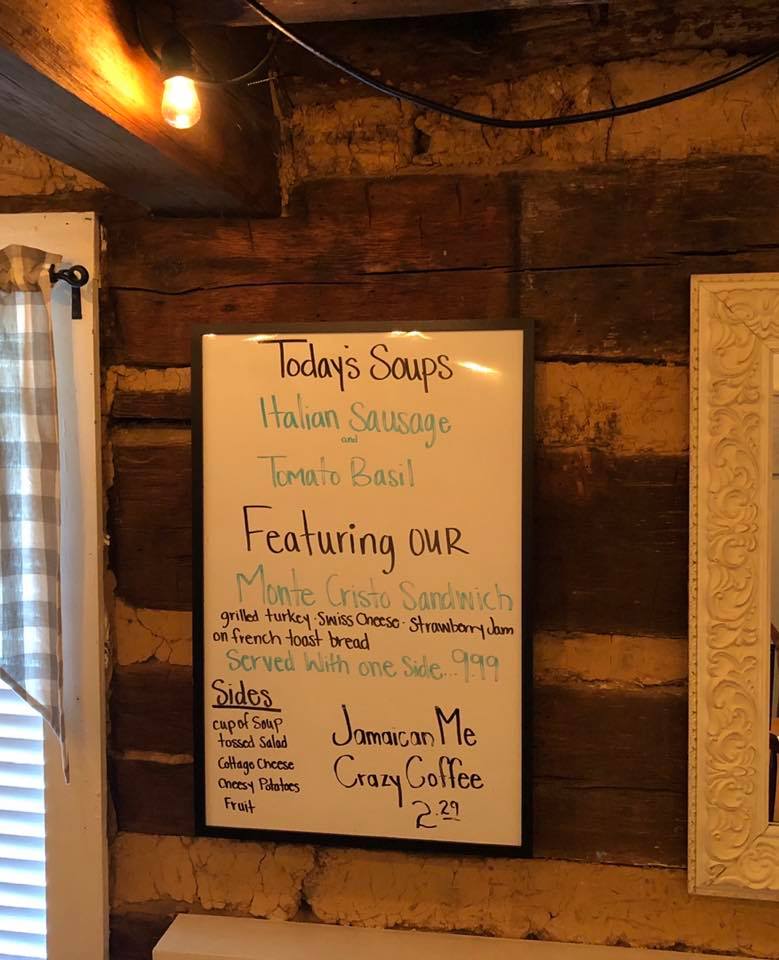 Today's Soups
Italian Sausage
and
Tomato Basil
Featuring OUR
Monte Cristo Sandwich
grilled turkey · Swiss Cheese · Strawberry Jam
on french toast bread
Served With one Side...9.99
Sides
cup of Soup
tossed Salad
Cottage Cheese
Cheesy Potatoes
Fruit
Jamaican Me
Crazy Coffee
2.29